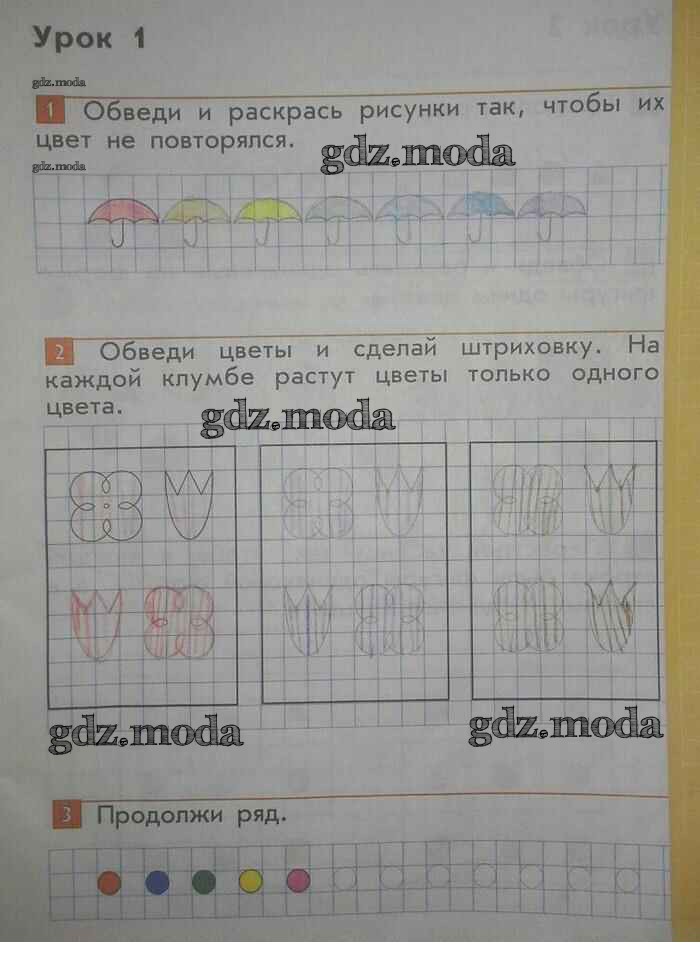 Урок 1
gdz.moda
1 Обведи и раскрась рисунки так, чтобы их
цвет не повторялся.
gdz.moda
gdz.moda
2 Обведи цветы и сделай штриховку. На
каждой клумбе растут цветы только одного
цвета.
gdz.moda
gdz.moda
gdz.moda
3 Продолжи ряд.